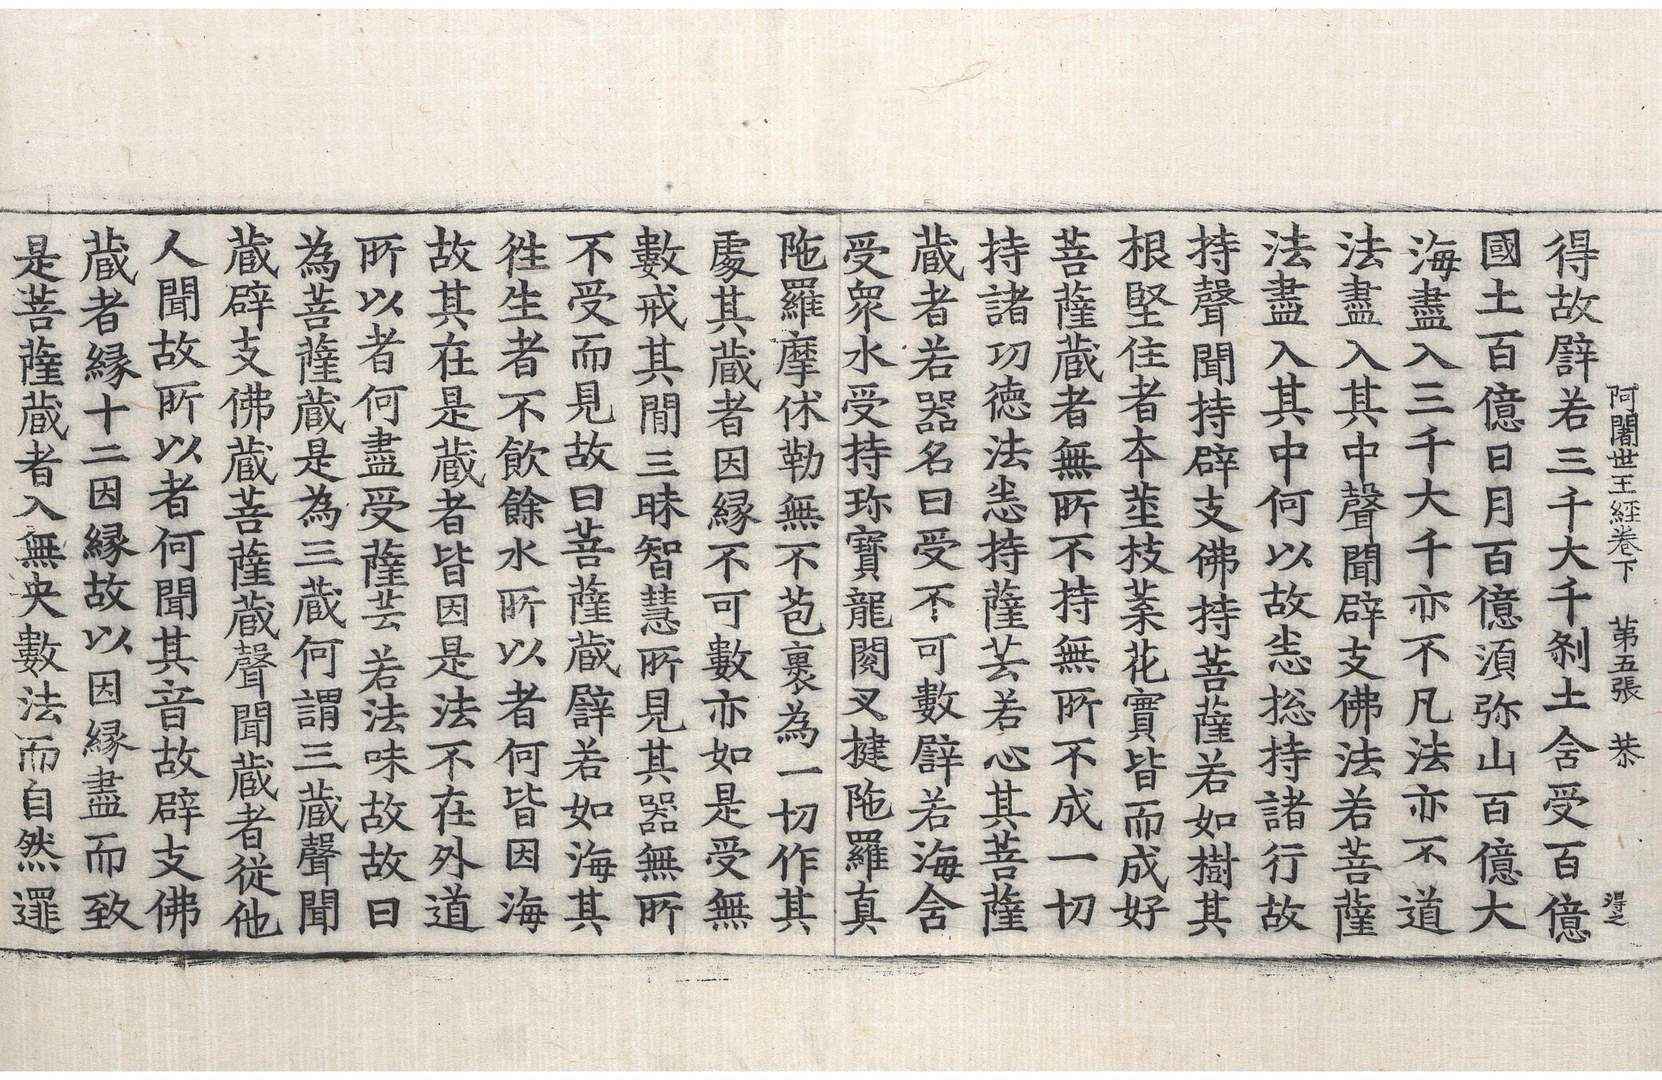 阿闍世王經卷下　第五張　恭
得之
得故譬若三千大千刹土舍受百億
國土百億日月百億須弥山百億大
海盡入三千大千亦不凡法亦不道
法盡入其中聲聞辟支佛法若菩薩
法盡入其中何以故悉捴持諸行故
持聲聞持辟支佛持菩薩若如樹其
根堅住者本莖枝葉花實皆而成好
菩薩蔵者無所不持無所不成一切
持諸功德法悉持薩芸若心其菩薩
蔵者若器名曰受不可數譬若海舍
受衆水受持珎寶龍閱叉揵陁羅真
陁羅摩休勒無不苞裹為一切作其
處其蔵者因縁不可數亦如是受無
數戒其閒三昧智慧所見其器無所
不受而見故曰菩薩蔵譬若如海其
徃生者不飲餘水所以者何皆因海
故其在是蔵者皆因是法不在外道
所以者何盡受薩芸若法味故故曰
為菩薩蔵是為三蔵何謂三蔵聲聞
蔵辟支佛蔵菩薩蔵聲聞蔵者従他
人聞故所以者何聞其音故辟支佛
蔵者縁十二因縁故以因縁盡而致
是菩薩蔵者入無央數法而自然逻